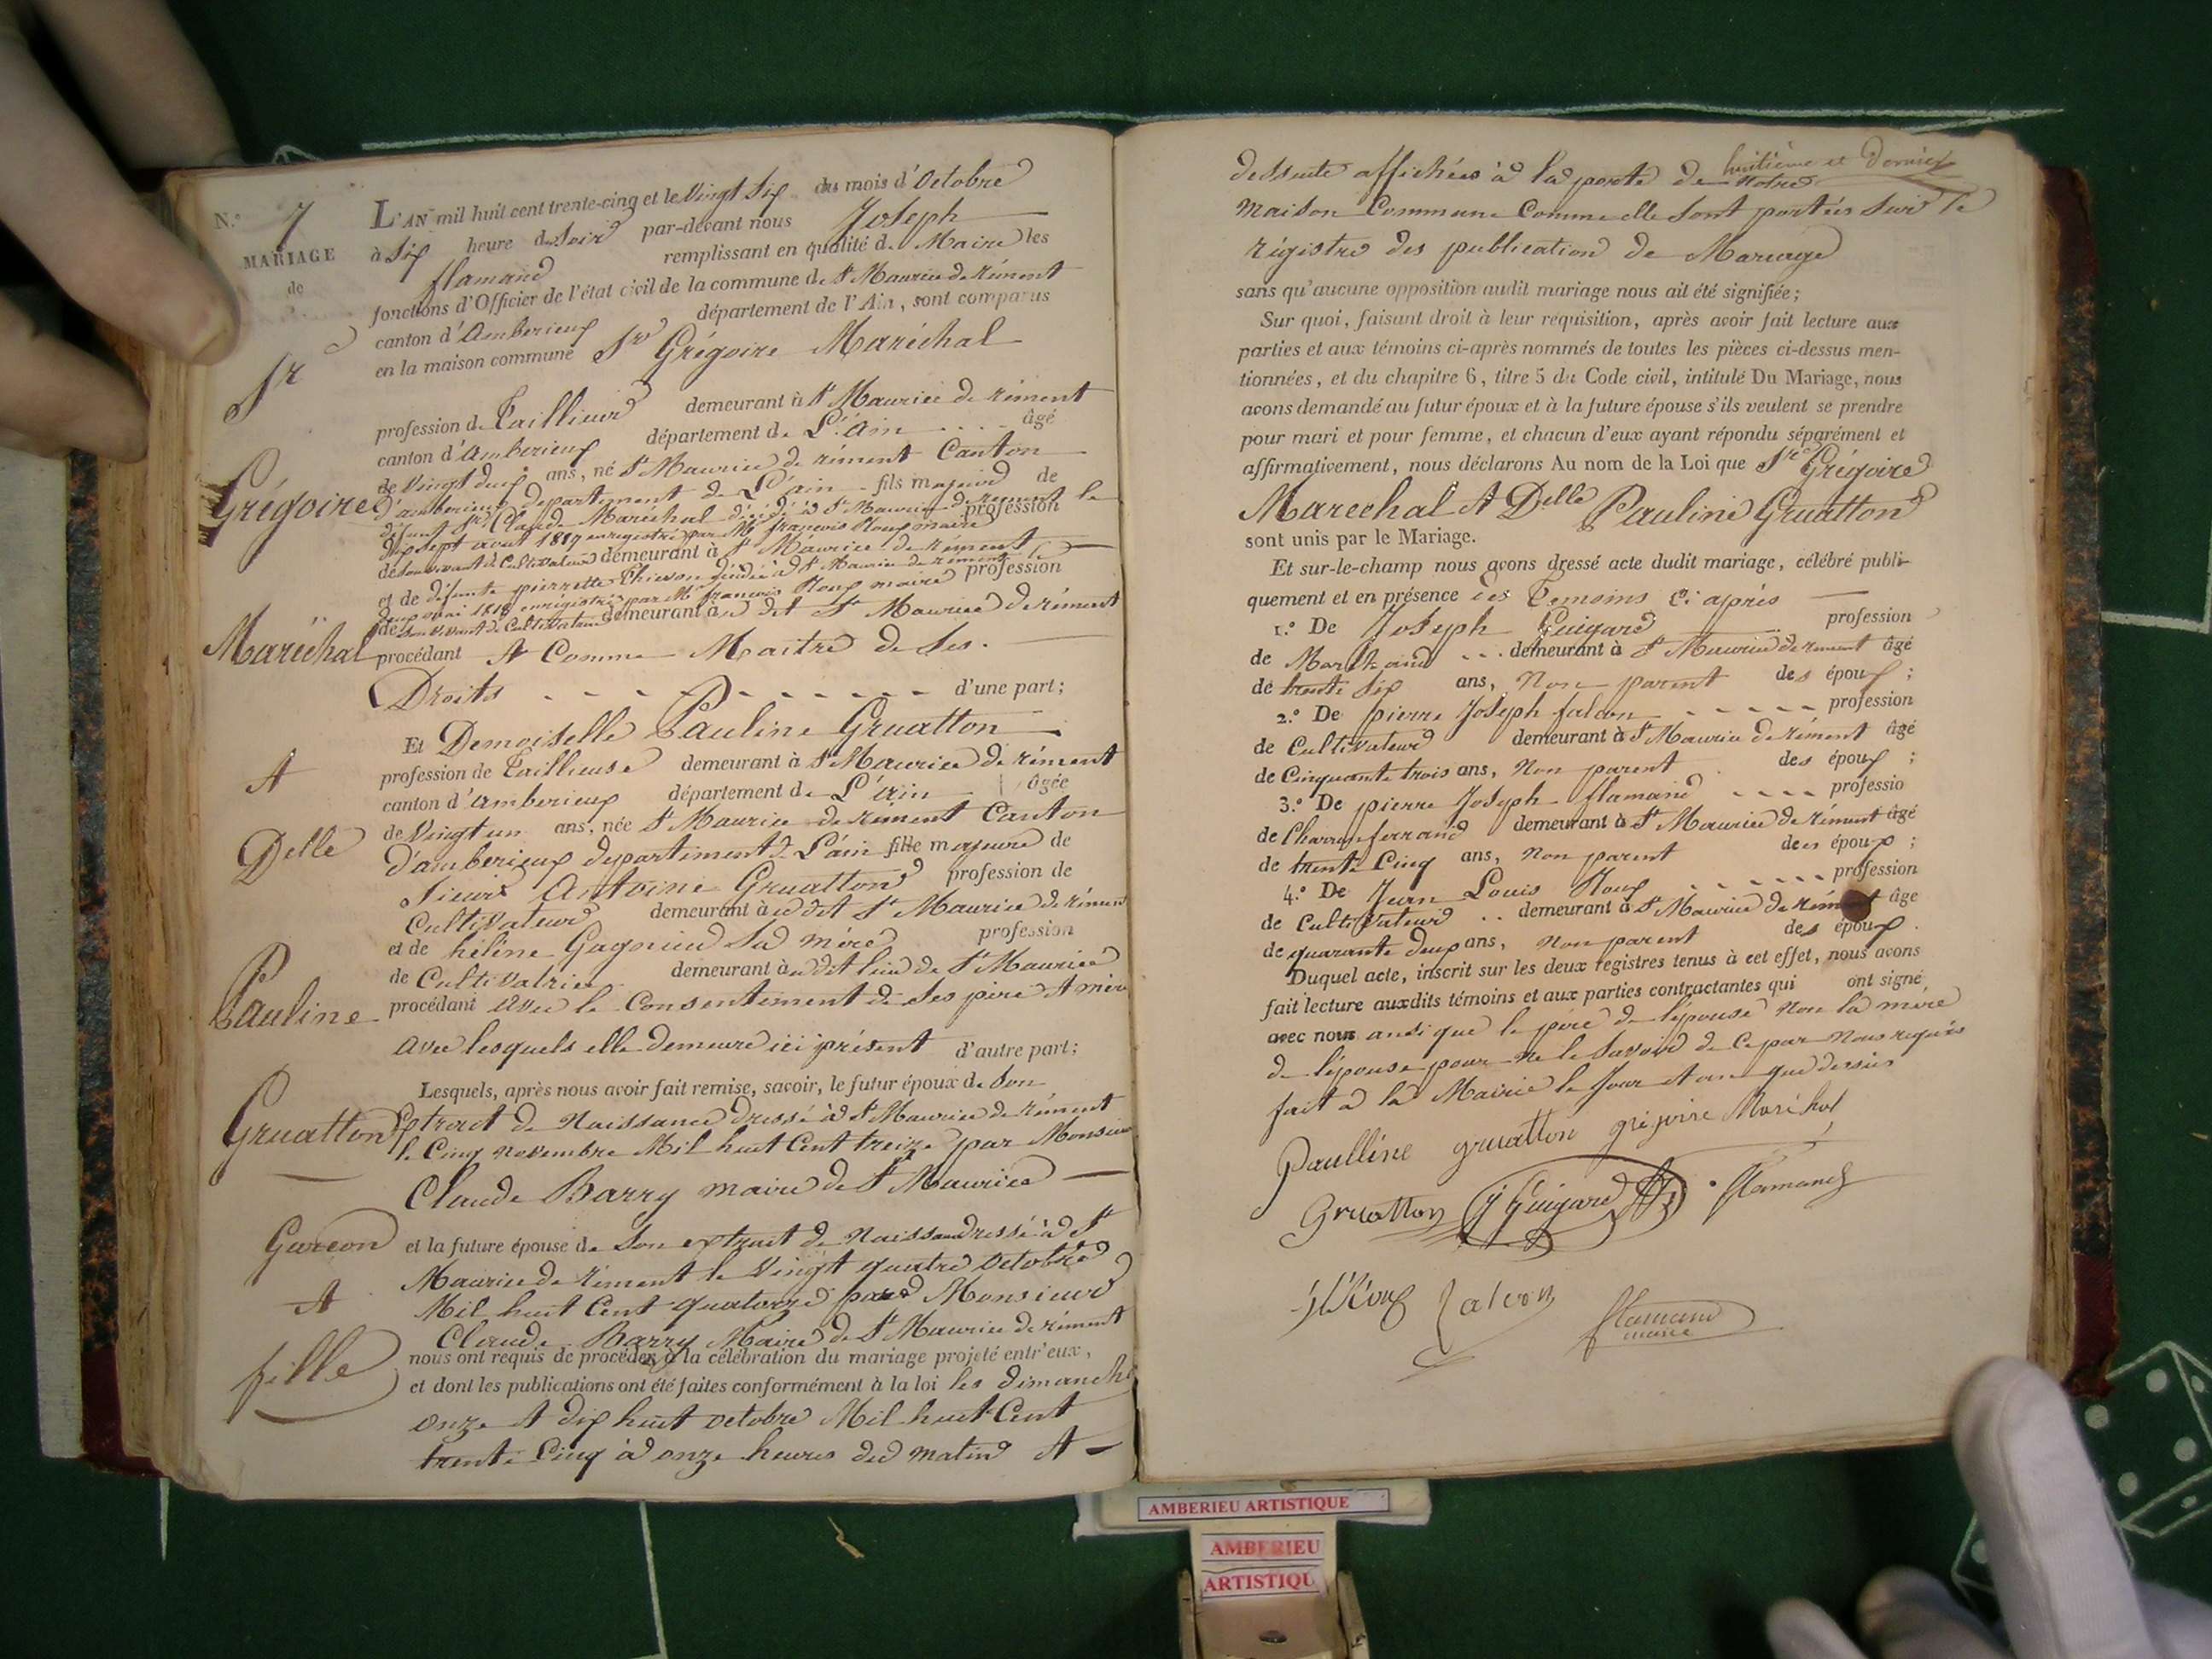 N.° 7
MARIAGE
de
Sr
Grégoire
Maréchal
et
Delle
Pauline
Gruatton
Garcon
et
fille
L'AN mil huit cent trente-cinq et le Vingt Six du mois d'Octobre
à Six heure du Soir par-devant nous Joseph
flamand remplissant en qualité de Maire les
fonctions d'Officier de l'état civil de la commune de St Maurice de rément
canton d'Amberieux département de l'Ain, sont comparus
en la maison commune Sr Grégoire Maréchal
profession de Taillieur demeurant à St Maurice de rément
canton d'Amberieux département de L'ain âgé
de Vingt deux ans, né St Maurice de rément Canton
d'amberieux département de L'ain fils majeur de
défunt Sr Claude Maréchal décédé à St Maurice de rément le
dix sept aout 1817 enregistré par Mr françois Roux maire profession
de Son vivant de Cultivateur demeurant à St Maurice de rément
et de défunte pierrette Thievon décédée à St Maurice de rément le
deux mai 1818 enrégistrée par Mr françois Roux maire profession
de Son vivant de Cultivateur demeurant à u dit St Maurice de rément
procédant et Comme Maitre de Ses
Droits d'une part;
Et Demoiselle Pauline Gruatton
profession de Taillieuse demeurant à St Maurice de rément
canton d'amberieux département de L'ain âgée
de Vingt un ans, née St Maurice de rément Canton
d'amberieux departement de L'ain fille majeure de
Sieur Antoine Gruatton profession de
Cultivateur demeurant à u dit St Maurice de rément
et de hélène Gagnieu Sa mère profession
de Cultivatrice demeurant à u dit lieu de St Maurice
procédant avec le Consentement de Ses père et mère
avec lesquels elle demeure ici présent d'autre part;
Lesquels, après nous avoir fait remise, savoir, le futur époux de Son
Extrait de Naissance dressé à St Maurice de rément
le Cinq novembre Mil huit Cent treize par Monsieur
Claude Barry maire de St Maurice
et la future épouse de Son extrait de Naissance dressé à St
Maurice de rément le Vingt quatre Octobre
Mil huit Cent quatorze par Monsieur
Claude Barry Maire de St Maurice de rément
nous ont requis de procéder à la célébration du mariage projeté entr'eux,
et dont les publications ont été faites conformément à la loi les dimanche
onze et dix huit octobre Mil huit Cent
trente Cinq à onze heures du matin et
huitième et Dernier
dessuite affichées à la porte de Notre
Maison Commune Comme elle Sont portées Sur le
régistre des publication de Mariage
sans qu'aucune opposition audit mariage nous ait été signifiée;
Sur quoi, faisant droit à leur requisition, après avoir fait lecture aux
parties et aux témoins ci-après nommés de toutes les pièces ci-dessus men-
tionnées, et du chapitre 6, titre 5 du Code civil, intitulé Du Mariage, nous
avons demandé au futur époux et à la future épouse s'ils veulent se prendre
pour mari et pour femme, et chacun d'eux ayant répondu séparément et
affirmativement, nous déclarons Au nom de la Loi que Sr Grégoire
Marechal et Delle Pauline Gruatton
sont unis par le Mariage.
Et sur-le-champ nous avons dressé acte dudit mariage, célébré publi-
quement et en présence des Temoins Ci après
1.° De Joseph Guigard profession
de Marchand demeurant à St Maurice de rement âgé
de trente Six ans, Non parent des époux;
2.° De pierre Joseph falcon profession
de Cultivateur demeurant à St Maurice de rément âgé
de Cinquante trois ans, Non parent des époux;
3.° De pierre Joseph flamand professio
de Charron ferrand demeurant à St Maurice de rément âgé
de trente Cinq ans, Non parent des époux;
4.° De Jean Louis Roux profession
de Cultivateur demeurant à St Maurice de rément âgé
de quarante deux ans, Non parent des époux.
Duquel acte, inscrit sur les deux registres tenus à cet effet, nous avons
fait lecture auxdits témoins et aux parties contractantes qui ont signé
avec nous ansi que le père de l'épouse Non la mère
de l'épouse pour ne le Savoir de Ce par Nous requis
fait à la Mairie le Jour et an que dessus
Paulline gruatton grégoire Maréchal
Gruatton J Guigard flamand
JL Roux falcon flamand
maire
AMBERIEU ARTISTIQUE
AMBERIEU
ARTISTIQU